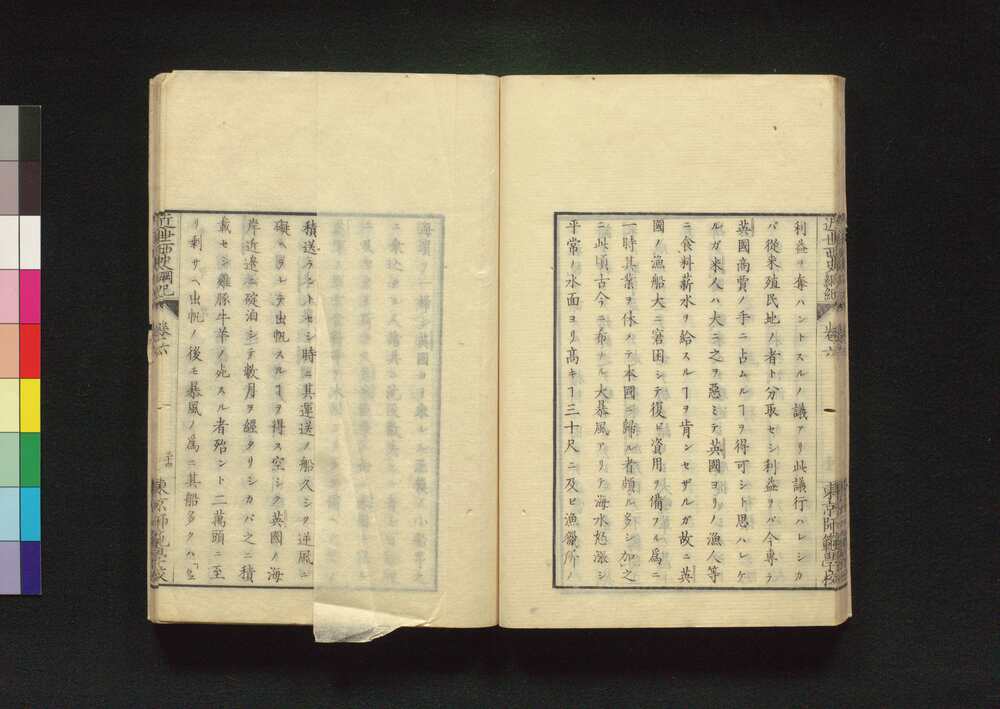 近世西史綱紀 卷六 東京師範學校
利益ヲ奪ハントスルノ議アリ此議行ハレシカ
バ從來殖民地ノ者ト分取セシ利益ヲバ今專ラ
英國商賈ノ手ニ占ムルヿヲ得可シト思ハレケ
ルガ米人ハ大ニ之ヲ惡ミテ英國ヨリノ漁人等
ニ食料薪水ヲ給スルヿヲ肯ンセザルガ故ニ英
國ノ漁船大ニ窘困シテ復ビ資用ヲ備フル爲ニ
一時其業ヲ休メテ本國ニ歸ル者頗ル多シ加之
ニ此頃古今ニ希ナル大暴風アリテ海水怒漲シ
平常ノ水面ヨリ高キヿ三十尺ニ及ビ漁獵所ノ
積送ラントセシ時ニ其運送ノ船久シク逆風ニ
礙ヘラレテ出帆スルヿヲ得ス空シク英國ノ海
岸近邊ニ碇泊シテ數月ヲ經タリシカバ之ニ積
載セシ雞豚牛羊ノ死スル者殆ント二萬頭ニ至
リ剩サヘ出帆ノ後モ暴風ノ爲ニ其船多クハ
近世西史綱紀 卷六 東京師範學校